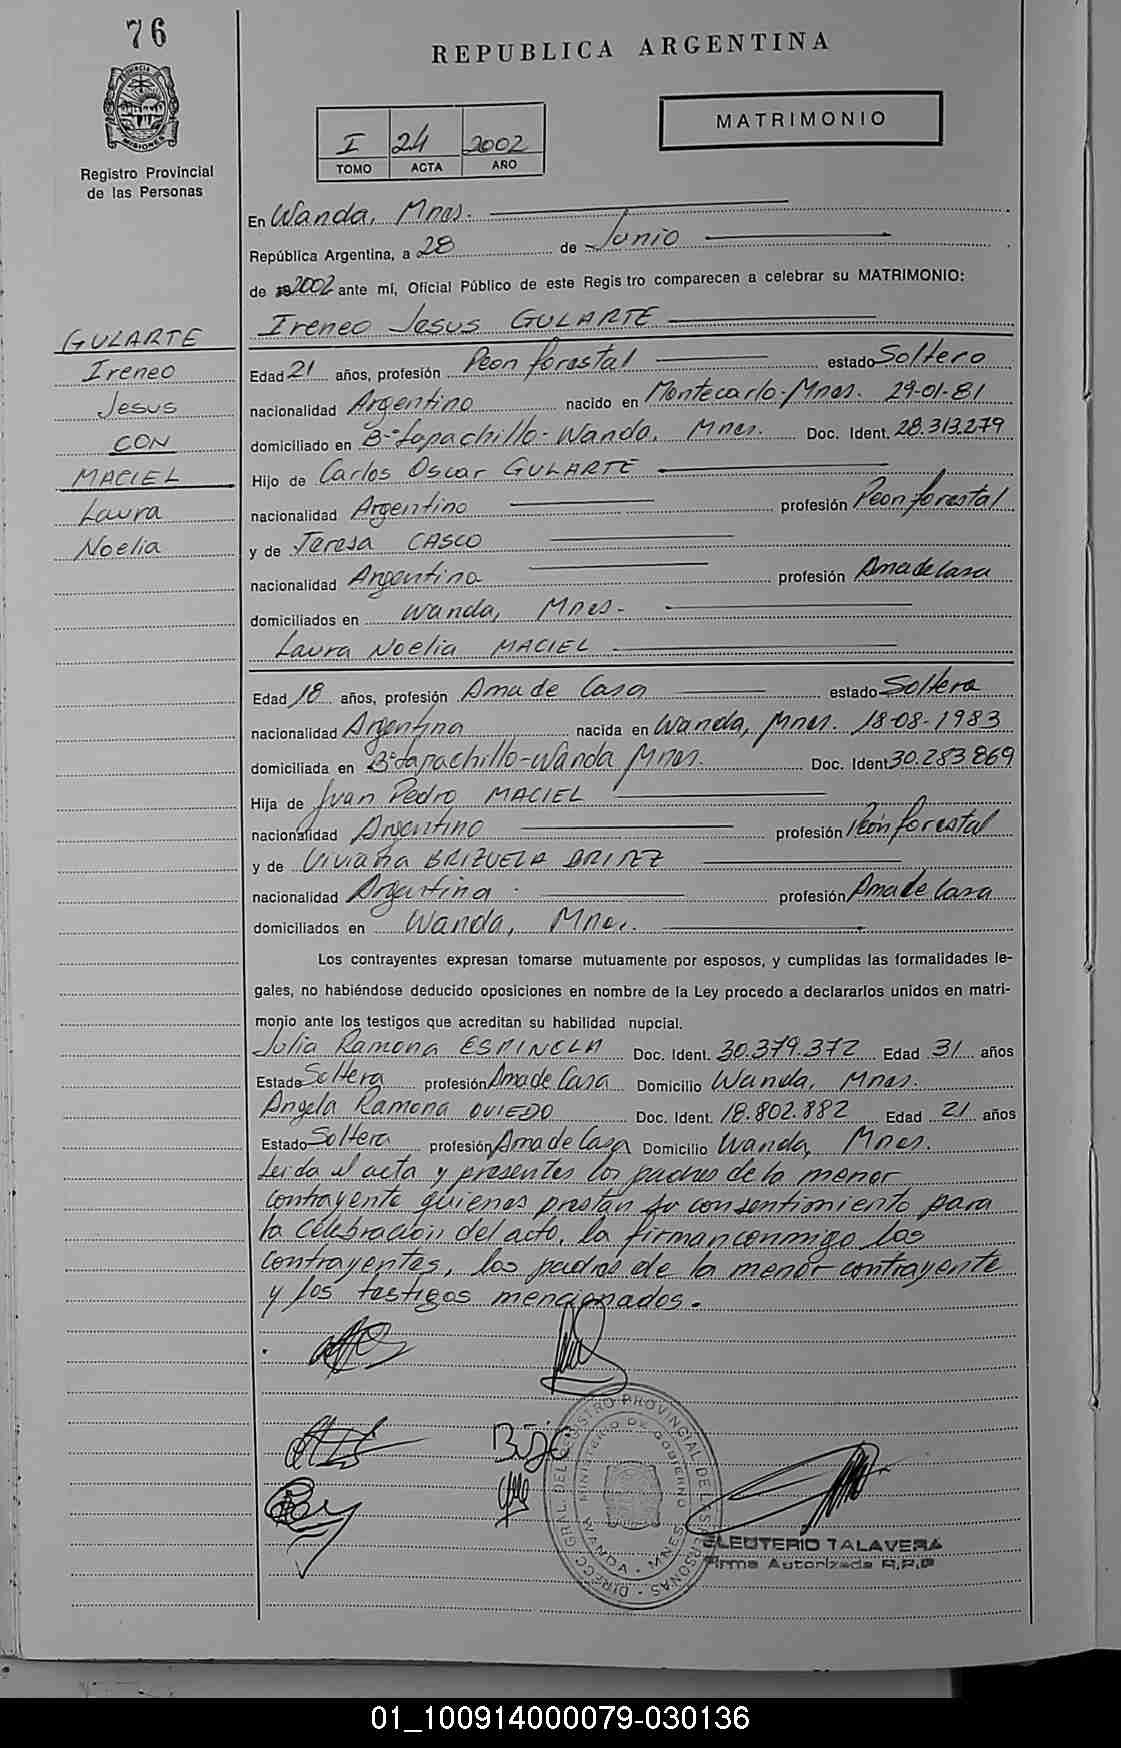 76
REPUBLICA ARGENTINA
MATRIMONIO
I 24 2002
TOMO ACTA AÑO
Registro Provincial
de las Personas
En Wanda, Mnes.
República Argentina, a 28 de Junio
de 2002 ante mí, Oficial Público de este Registro comparecen a celebrar su MATRIMONIO:
Ireneo Jesus GULARTE
GULARTE
Ireneo
Jesus
CON
MACIEL
Laura
Noelia
Edad 21 años, profesión Peon forestal estado Soltero
nacionalidad Argentino nacido en Montecarlo-Mnes. 29-01-81
domiciliado en B-Lapachillo-Wanda, Mnes. Doc. Ident. 28.313.279
Hijo de Carlos Oscar GULARTE
nacionalidad Argentino profesión Peon forestal
y de Teresa CASCO
nacionalidad Argentina profesión Ama de Casa
domiciliados en Wanda, Mnes-
Laura Noelia MACIEL
Edad 18 años, profesión Ama de Casa estado Soltera
nacionalidad Argentina nacida en Wanda, Mnes. 18-08-1983
domiciliada en B°Lapachillo-Wanda Mnes. Doc. Ident 30.283.869
Hija de Juan Pedro MACIEL
nacionalidad Argentino profesión Peón forestal
y de Viviana BRIZUELA
nacionalidad Argentina profesión Ama de Casa
domiciliados en Wanda, Mnes.
Los contrayentes expresan tomarse mutuamente por esposos, y cumplidas las formalidades le-
gales, no habiéndose deducido oposiciones en nombre de la Ley procedo a declararlos unidos en matri-
monio ante los testigos que acreditan su habilidad nupcial.
Julia Ramona ESPINOLA Doc. Ident. 30.379.372 Edad 31 años
Estado Soltera profesión Ama de Casa Domicilio Wanda, Mnes.
Angela Ramona OVIEDO Doc. Ident. 18.802.882 Edad 21 años
Estado Soltera profesión Ama de Casa Domicilio Wanda, Mnes.
Leida el acta y presentes los padres de la menor
contrayente quienes prestan su consentimiento para
la celebración del acto, la firman conmigo los
contrayentes, los padres de la menor contrayente
y los testigos mencionados.
DIRECC. GRAL. DEL REGISTRO PROVINCIAL DE LAS PERSONAS
MINISTERIO DE GOBIERNO
WANDA - MNES
ELEUTERIO TALAVERA
Firma Autorizada R.P.P
01_100914000079-030136